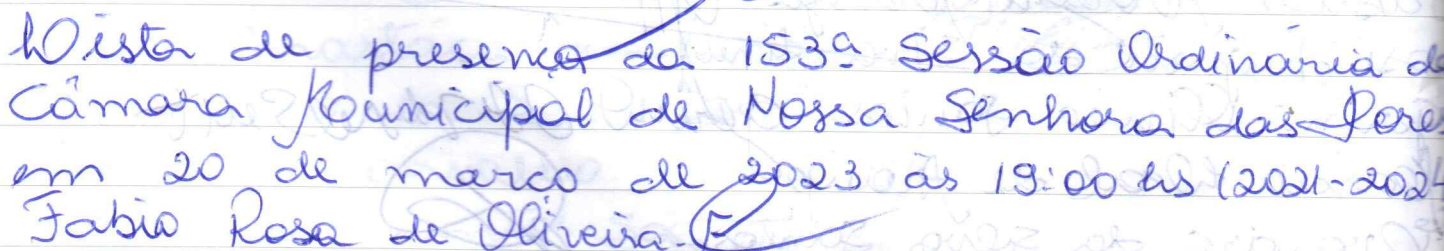 Lista de presença da 153ª Sessão Ordinária d
Câmara Municipal de Nossa Senhora das Dores
em 20 de março de 2023 às 19:00 hs (2021-2024
Fabio Rosa de Oliveira.